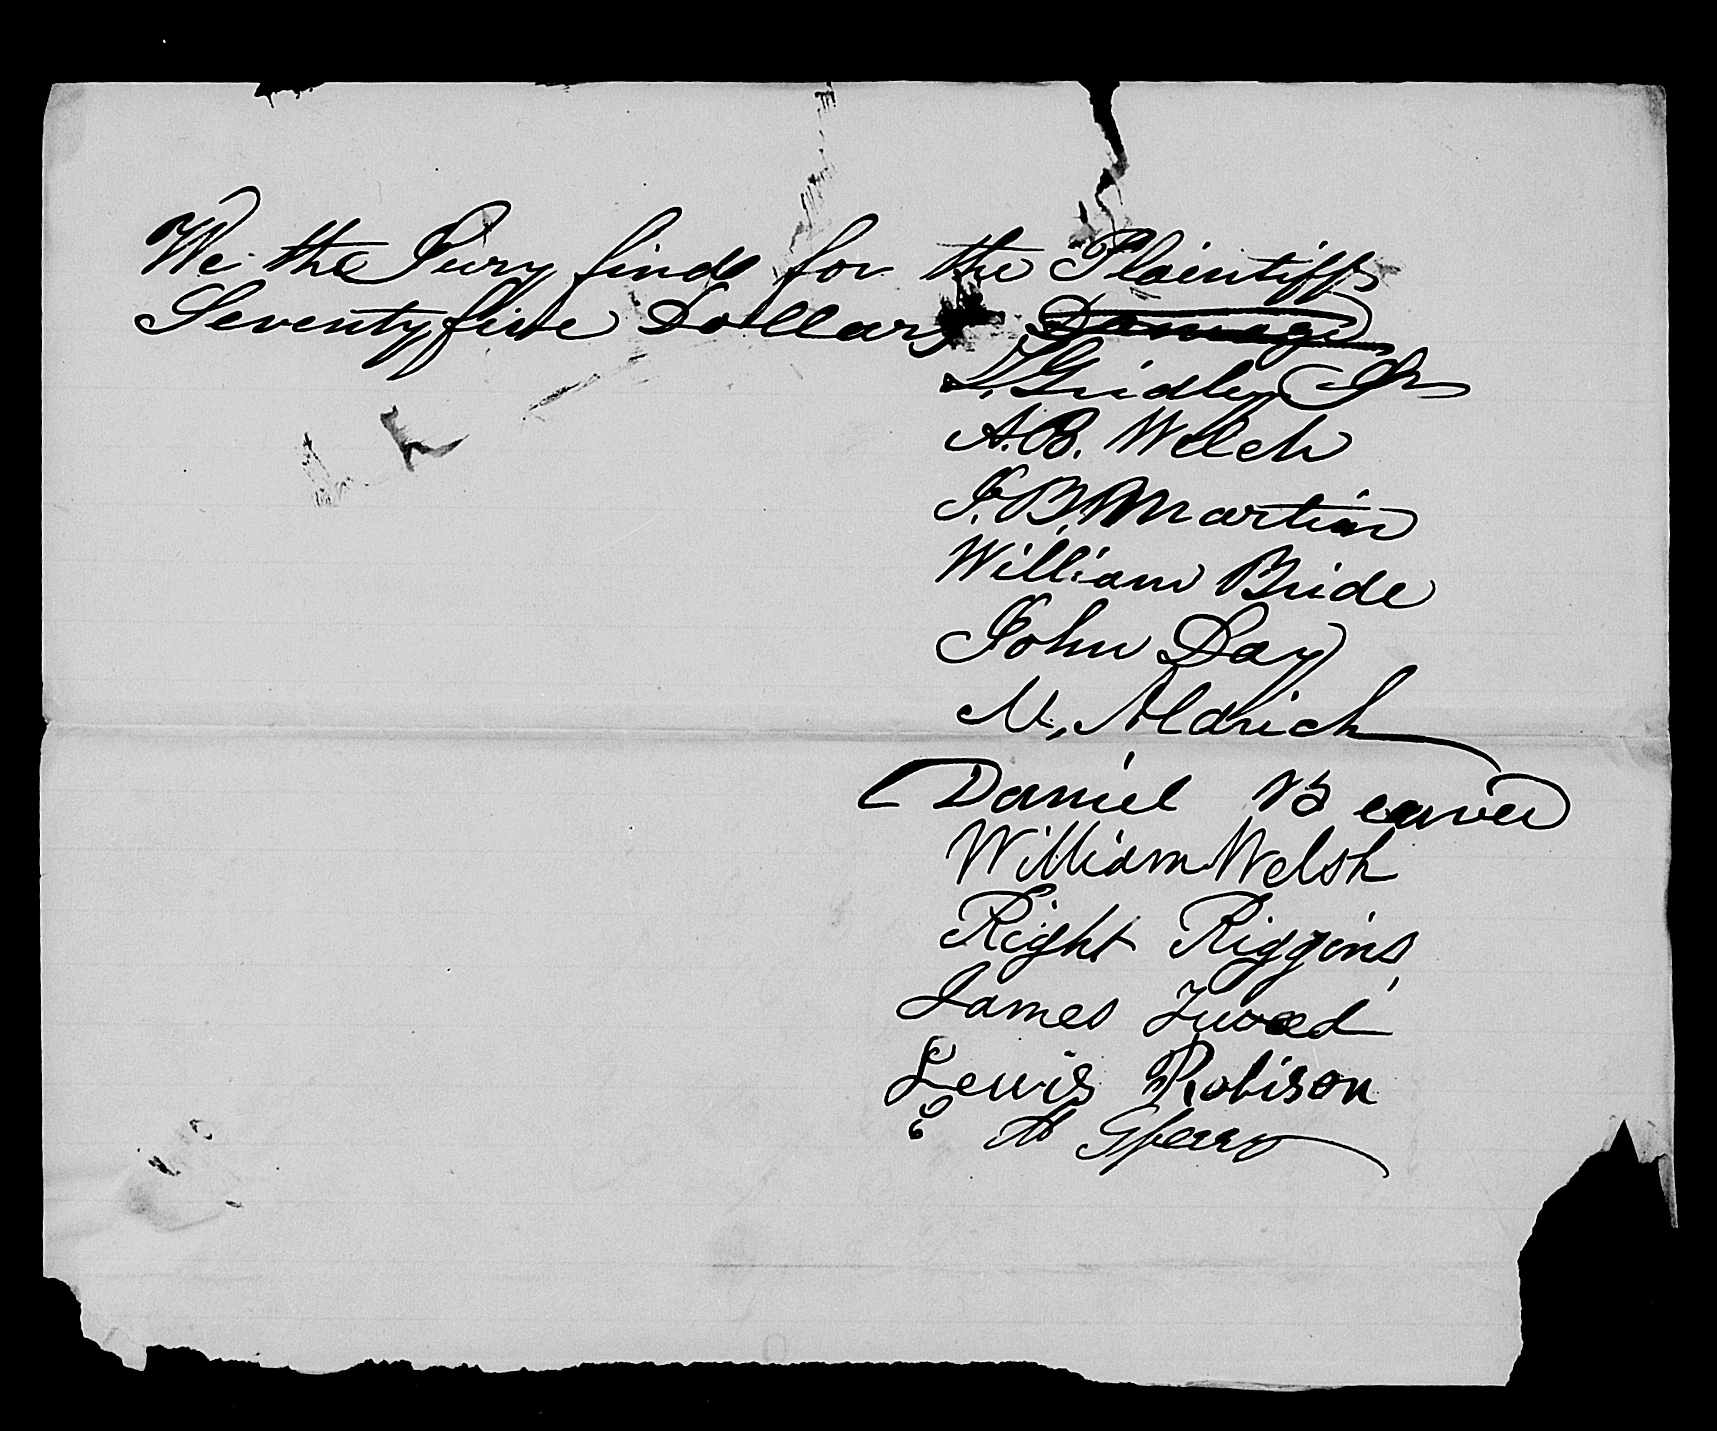 We the Jury finds for the Plaintiffs
Seventyfive Dollars Damage
L. Gridley Jr
A. B. Welch
J. B. Martin
William Bride
John Day
N. Aldrich
Daniel Beaver
William Welsh
Right Riggins
James Tweed
Lewis Robison
E H Sperry